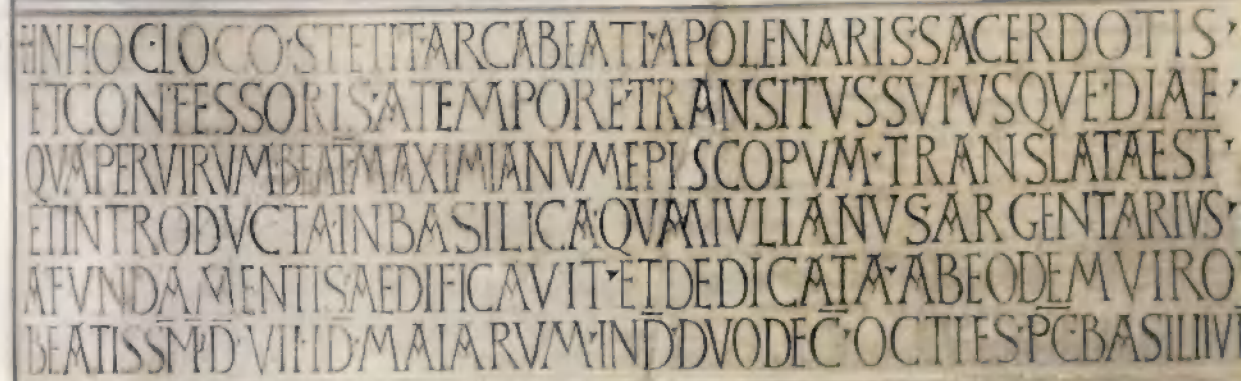 INHOC·LOCO·STETIT·ARCABEATI·APOLENARIS·SACERDOTIS·
ETCONFESSORIS·ATEMPORE·TRANSITVSSVI·VSQVE·DIAE·
QVAPERVIRVM·BEAT̅MAXIMIANVMEPISCOPVM·TRANSLATAEST·
ETINTRODVCTA·INBASILICA·QVAMIVLIANVS·ARGENTARIVS·
AFVNDAMENTIS·AEDIFICAVIT·ETDEDICATA·ABEODEMVIRO
BEATISSM̅·D̅·VII·ID̅·MAIARVM·IND̅·DVODEC̅·OCTIES·PC̅·BASILIIVI